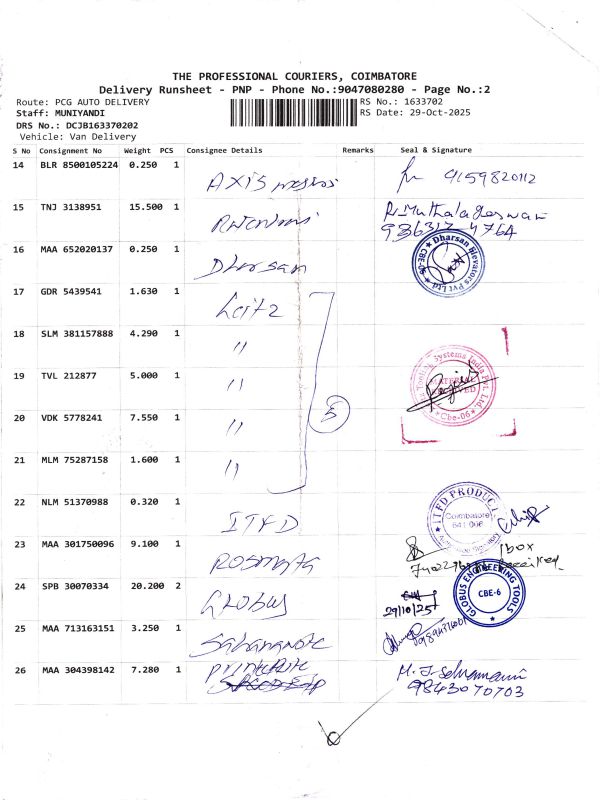 THE PROFESSIONAL COURIERS, COIMBATORE
Delivery Runsheet - PNP - Phone No.:9047080280 - Page No.:2
Route: PCG AUTO DELIVERY
RS No.: 1633702
Staff: MUNIYANDI
RS Date: 29-Oct-2025
DRS No.: DCJB163370202
Vehicle: Van Delivery
S No Consignment No Weight PCS Consignee Details Remarks Seal & Signature
14 BLR 8500105224 0.250 1 AXIS 9159820112
15 TNJ 3138951 15.500 1
16 MAA 652020137 0.250 1 Dharsan Dharsan Elevators Pvt Ltd CBE-06
17 GDR 5439541 1.630 1 Leitz
18 SLM 381157888 4.290 1 "
19 TVL 212877 5.000 1 " Systems India Pvt. Ltd Cbe-06
20 VDK 5778241 7.550 1 " 5
21 MLM 75287158 1.600 1 "
22 NLM 51370988 0.320 1 ITFD ITFD PRODUCT Coimbatore 641 006
23 MAA 301750096 9.100 1 1 box Received.
24 SPB 30070334 20.200 2 GLOBUS 29/10/25 GLOBUS ENGINEERING TOOLS CBE-6
25 MAA 713163151 3.250 1
26 MAA 304398142 7.280 1 9843070703